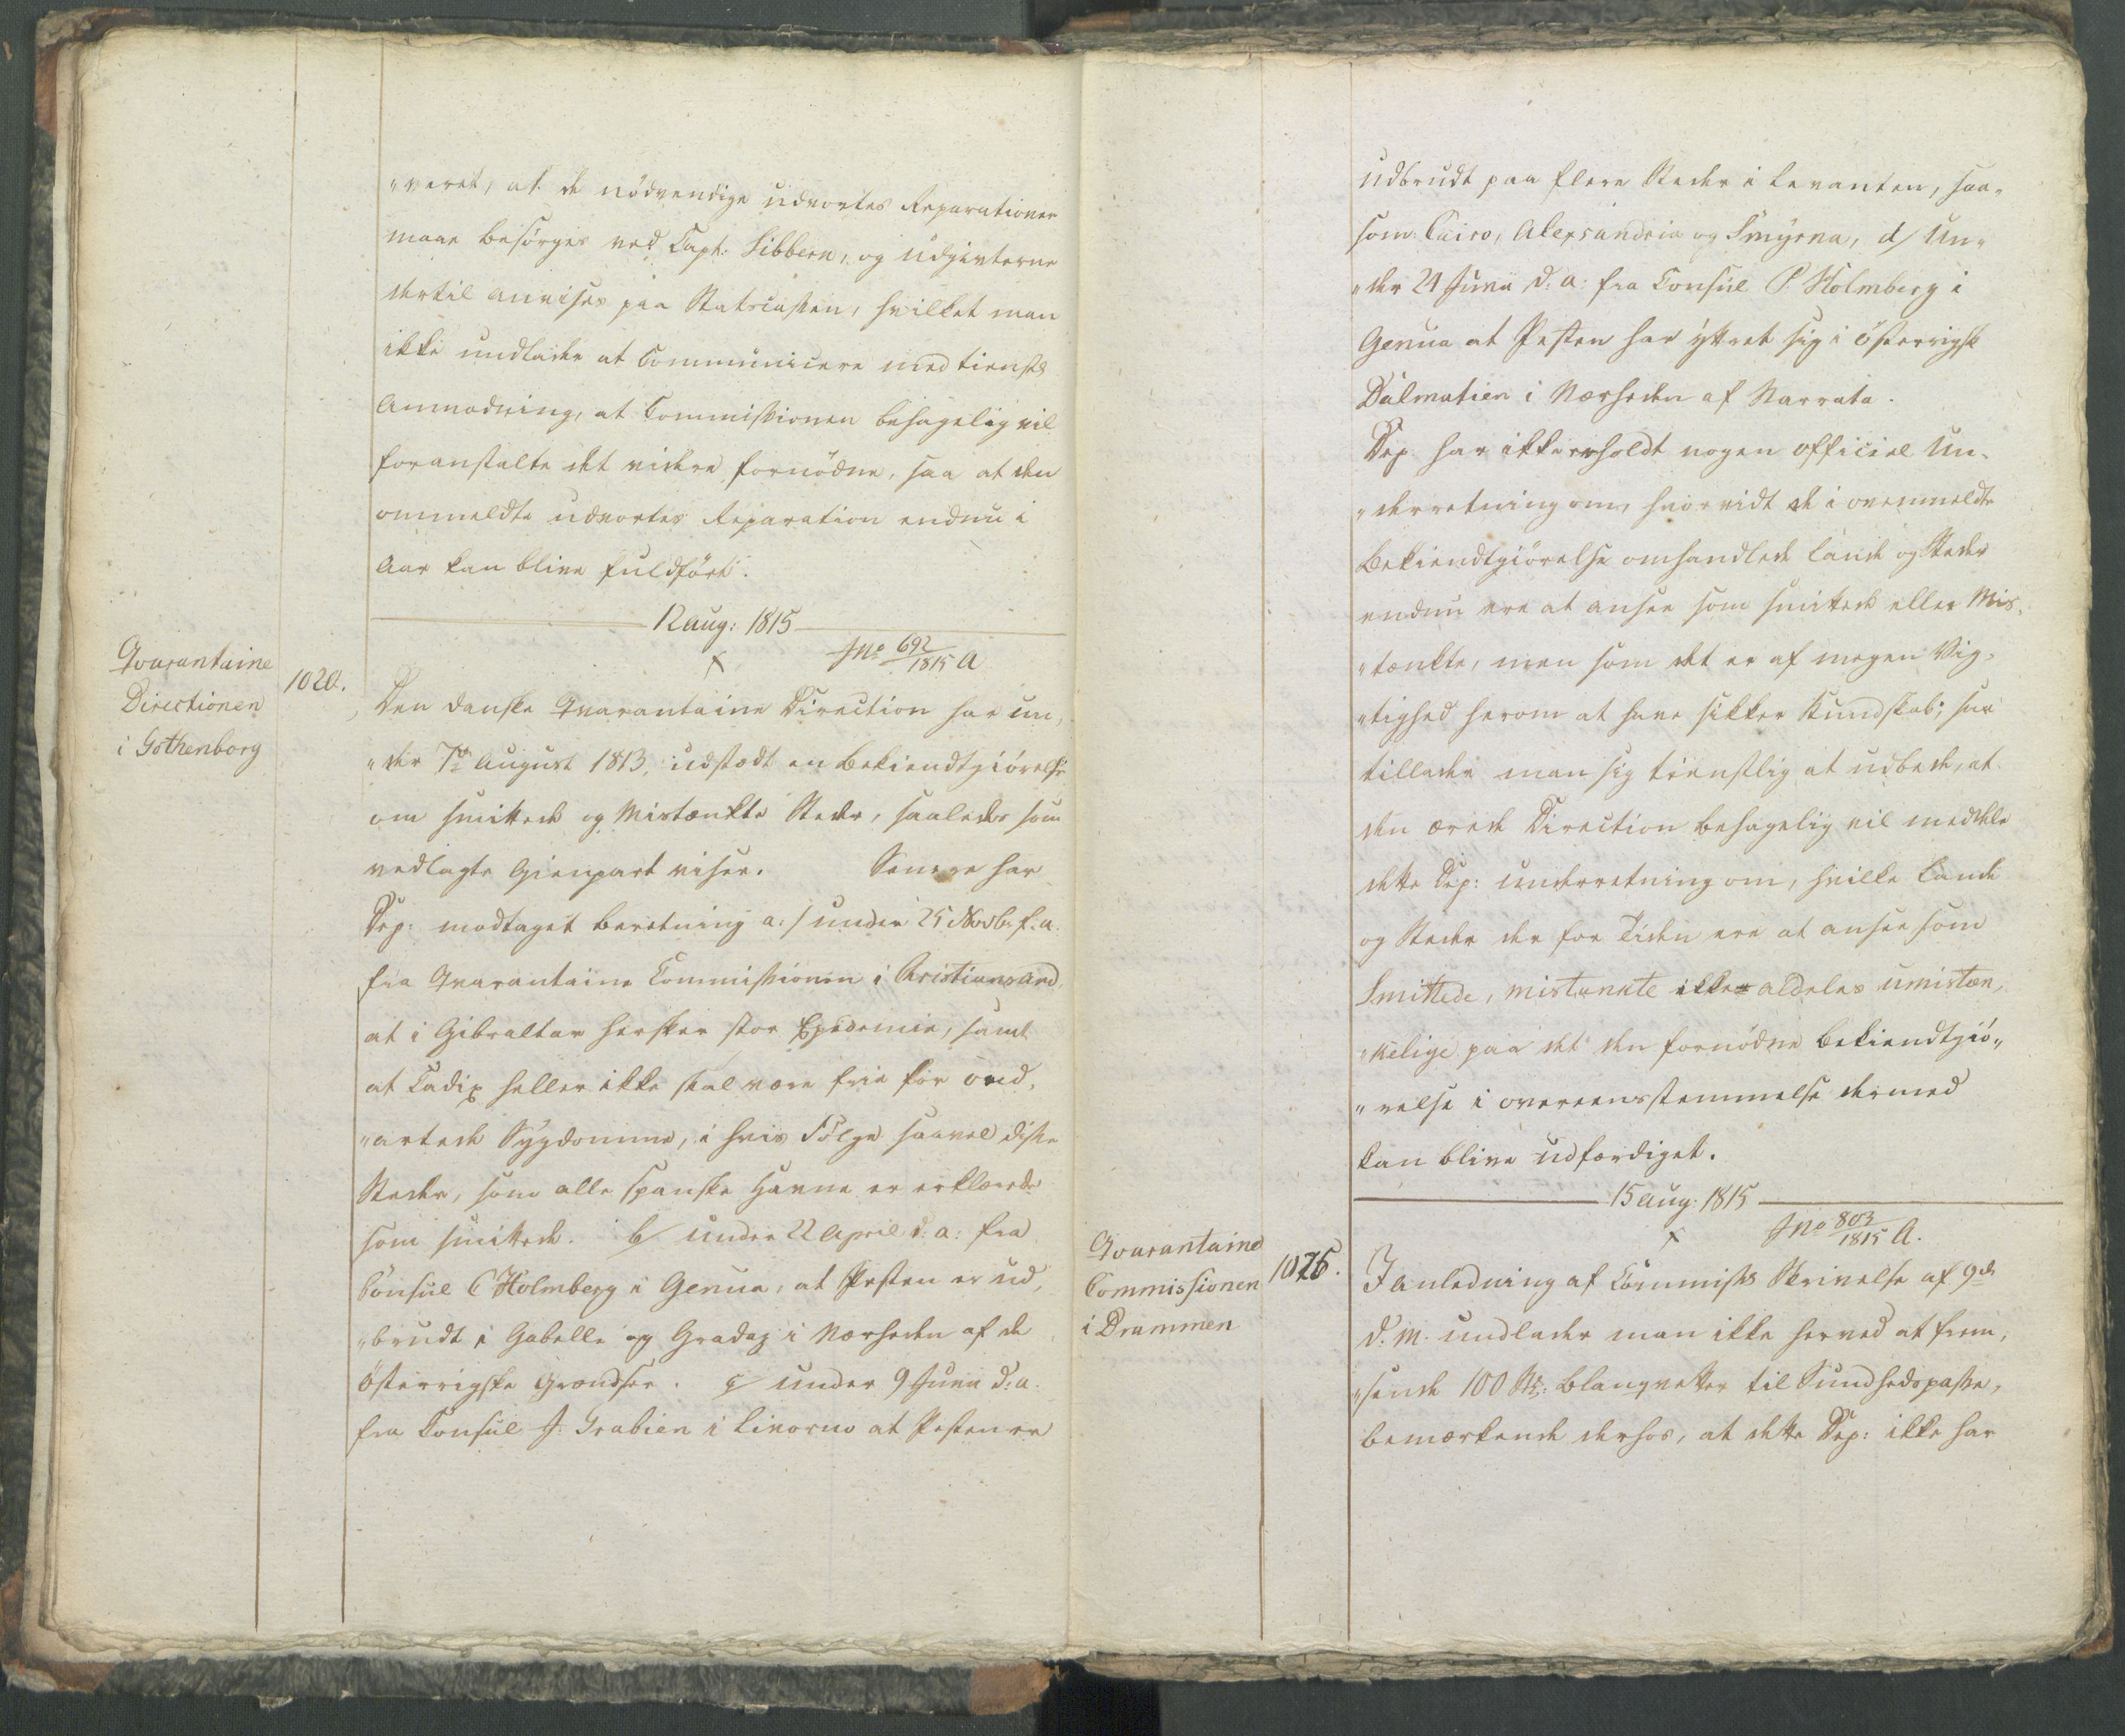 "veret, at de nödvendige udvortes Reparationer
maae besörges ved Capt: Sibbern, og udgivterne
dertil anvises paa Statscassen, hvilket man
ikke undlader at Communicere med tienstl
Anmodning, at Commissionen behagelig vil
foranstalte det videre fornödne, saa at den
ommeldte udvortes Reparation endnu i
Aar kan blive fuldfört.
12 aug: 1815
Jno 692/1815 A
Qvarantaine
Directionen
i Gothenborg
Den danske Qvarantaine Direction har un,
"der 7de August 1813, udstædt en Bekiendtgiörelse
om smittede og Mistænkte Steder, saaledes som
vedlagte Gienpart viser. Senere har
Dep: modtaget Beretning a:/ under 25 Novbr f. a.
fra Qvarantaine Commissionen i Christiansand,
at i Gibraltar hersker stor Epidemie, samt
at Cadix heller ikke skal være frie for ond,
"artede Sygdomme, i hvis Fölge saavel disse
Steder, som alle spanske Havne er erklærede
som smittede. b/ under 22 April d: a: fra
Consul C Holmberg i Genua, at Pesten er ud,
"brudt i Gabelle og Gradaz i Nærheden af de
Österrigske Grændser. c/ under 9 Junii d: a.
fra Consul J. Grabien i Livorno at Pesten er
udbrudt paa flere Steder i Levanten, saa-
som Cairo, Alexsandria og Smyrna, d/ Un-
"der 24 Junii d: a: fra Consul P Holmberg i
Genua at Pesten har yttret sig i Österrigsk
Dalmatien i Nærheden af Narrata.
Dep. har ikke erholdt nogen officiel Un-
"derretning om, hvorvidt de i ovenmeldte
Bekiendtgiörelse omhandlede Lande og Steder
endnu ere at ansee som smittede eller Mis-
"tænkte, men som det er af megen Vig-
"tighed herom at have sikker Kundskab; saa
tillader man sig tienstlig at udbede, at
den ærede Direction behagelig vil meddele
dette Dep: underretning om, hvilke Lande
og Steder der for Tiden ere at ansee som
Smittede, mistænkte ikke aldeles umistæn,
"kelige paa det den fornödne Bekiendtgiö-
"relse i overeensstemmelse dermed
kan blive udfærdiget.
15 aug: 1815
Jno 803/1815 A.
Qvarantaine
Commissionen
i Drammen
I anledning af Commiss Skrivelse af 9de
d. M. undlader man ikke herved at frem,
"sende 100 St: blanqvetter til Sundhedspasse,
bemærkende derhos, at dette Dep: ikke har